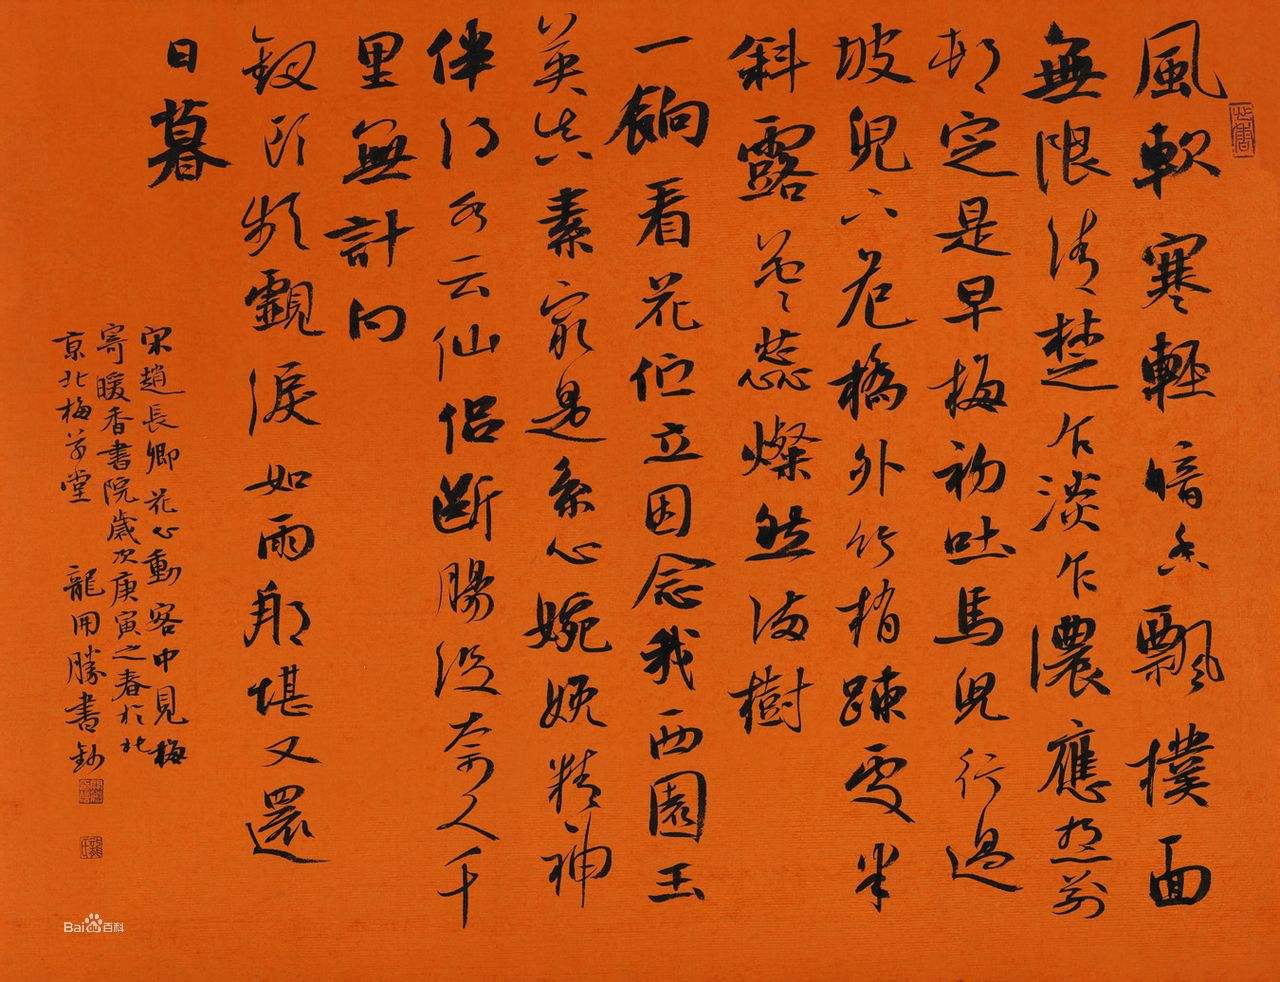 風軟寒輕暗香飄撲面
無限清楚乍淡乍濃應想前
村定是早梅初吐馬兒行過
坡兒下危橋外竹梢疎處半
斜露葱蘂燦然滿樹
一餉看花佇立因念我西園玉
英真素最是系心婉娩精神
伴得水云仙侶斷腸沒奈人千
里無計向
釵頭頻覷淚如雨那堪又還
日暮
宋趙長卿花心動客中見梅
寄暖香書院歲次庚寅之春於北
京北梅草堂 龍開勝書鈔
Bai百科